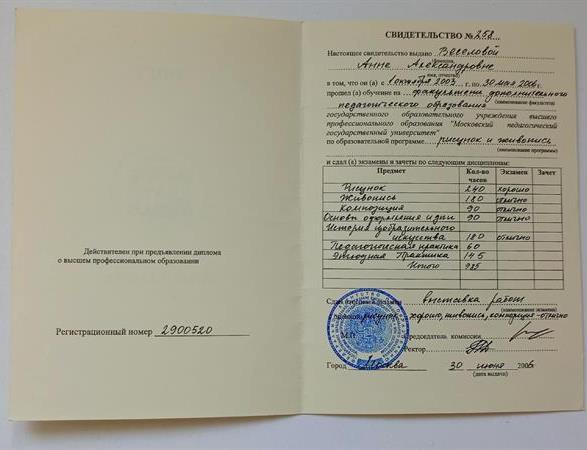 Действителен при предъявлении диплома
о высшем профессиональном образовании
Регистрационный номер 2900520
СВИДЕТЕЛЬСТВО № 258
Настоящее свидетельство выдано Веселовой
Анне Александровне
в том, что он (а) с 1 октября 2003 г. по 30 мая 2006 г.
прошел (а) обучение на факультете дополнительного
педагогического образования (наименование факультета)
государственного образовательного учреждения высшего
профессионального образования "Московский педагогический
государственный университет"
по образовательной программе рисунок и живопись
(наименование программы)
и сдал (а) экзамены и зачеты по следующим дисциплинам:
Предмет Кол-во часов Экзамен Зачет
Рисунок 240 хорошо
Живопись 180 отлично
Композиция 90 отлично
Основы оформления 90 отлично
История изобразительного
искусства 180 отлично
Педагогическая практика 60
Практика 145
Итого 985
выставка работ
(наименование экзамена)
рисунок - хорошо, живопись, композиция - отлично
М.П. Председатель комиссии
Ректор
Город Москва 30 июня 2006
(дата выдачи)